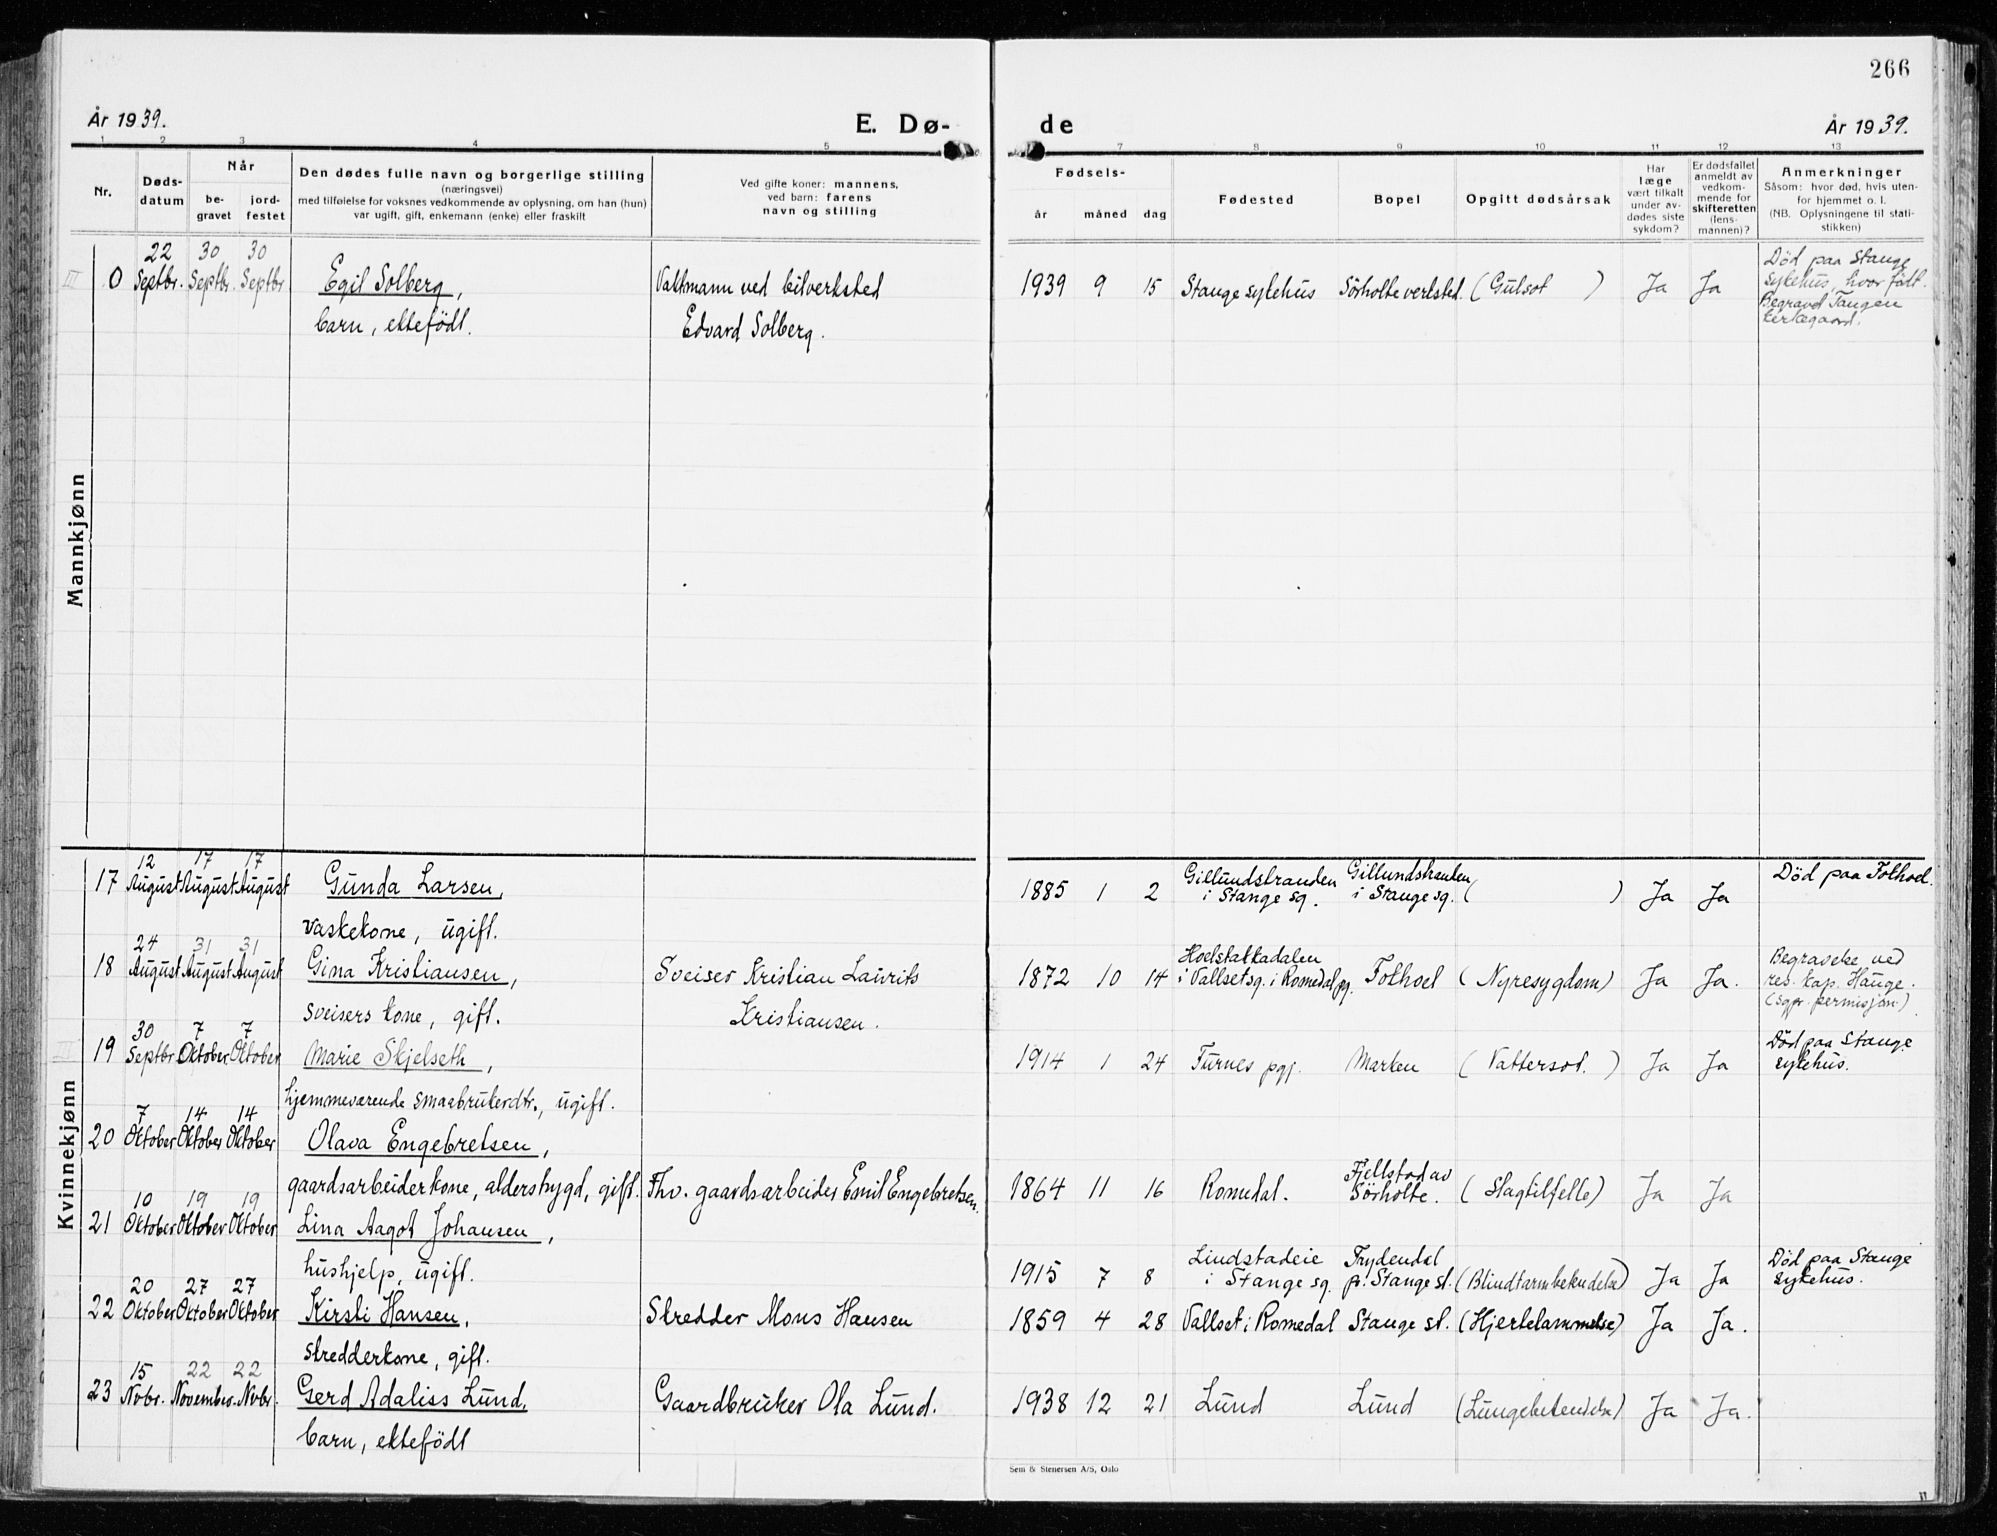 266
År 1939.
E. Dø-
de
År 1939.
1 2 3 4 5 7 8 9 10 11 12 13
Nr.
Døds-
datum
Når
be-
gravet
jord-
festet
Den dødes fulle navn og borgerlige stilling
(næringsvei)
med tilføielse for voksnes vedkommende av oplysning, om han (hun)
var ugift, gift, enkemann (enke) eller fraskilt
Ved gifte koner: mannens,
ved barn: farens
navn og stilling
Fødsels-
år måned dag
Fødested
Bopel
Opgitt dødsårsak
Har
læge
vært tilkalt
under av-
dødes siste
sykdom?
Er dødsfallet
anmeldt av
vedkom-
mende for
skifteretten
(lens-
mannen)?
Anmerkninger
Såsom: hvor død, hvis uten-
for hjemmet o. l.
(NB. Oplysningene til stati-
stikken)
Mannkjønn
22 30 30
III 0 Septbr. Septbr. Septbr Egil Solberg, Vaktmann ved bilverksted 1939 9 15 Stange sykehus Sörholte verksted. (Gulsot ) Ja Ja
barn, ektefödt. Edvard Solberg.
Död paa Stange
sykehus, hvor födt.
Begravet Tangen
kirkegaard.
Kvinnekjønn
12 17 17
17 August August August Gunda Larsen, 1885 1 2 Gillundstranden Gillundstranden ( ) Ja Ja Död paa Folhoel.
i Stange sg. i Stange sg.
vaskekone, ugift.
24 31 31
18 August August August Gina Kristiansen, Sveiser Kristian Laurits 1872 10 14 Hoelstakkadalen
i Vallset sg. i Romedal pg. Folhoel (Nyresygdom) Ja Ja.
sveisers kone, gift. Kristiansen.
Begravelse ved
res. kap. Hauge.
(sgpr. permisjon.)
30 7 7
19 Septbr. Oktober. Oktober Marie Skjelseth, 1914 1 24 Furnes pgj. Marken (Vattersot. ) Ja Ja Död paa Stange
sykehus.
hjemmeværende smaabrukerdtr., ugift.
7 14 14
20 Oktober Oktober Oktober Olava Engebretsen,
gaardsarbeiderkone, alderstrygd, gift. Fhv. gaardsarbeider Emil Engebretsen. 1864 11 16 Romedal. Fjellstad av
Sörholte. (Slagtilfelle) Ja Ja
10 19 19
21 Oktober Oktober Oktober Lina Aagot Johansen,
hushjelp, ugift. 1915 7 8 Lindstadeie Frydendal
i Stange sg. pr. Stange st. (Blindtarmbetendelse) Ja Ja Död paa Stange
sykehus.
20 27 27
22 Oktober Oktober Oktober Kirsti Hansen, Skredder Mons Hansen 1859 4 28 Vallset i Romedal Stange st. (Hjertelammelse) Ja Ja.
skredderkone, gift.
15 22 22
23 Novbr. November. Novbr. Gerd Adaliss Lund, Gaardbruker Ola Lund. 1938 12 21 Lund Lund (Lungebetendelse) Ja Ja.
barn, ektefödt
Sem & Stenersen A/S, Oslo